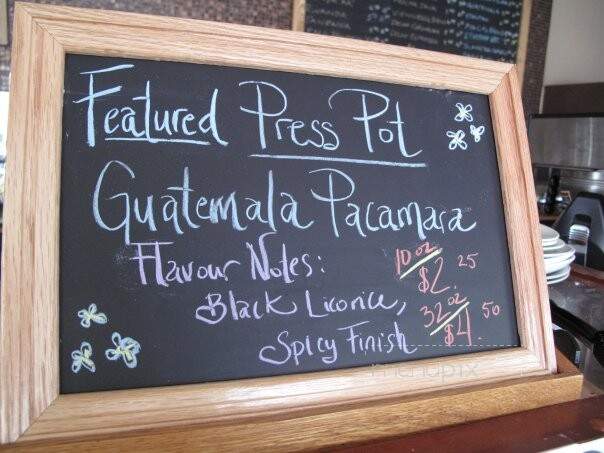 Featured Press Pot
Guatemala Pacamara
Flavour Notes:
Black Licorice,
Spicy Finish
10 oz
$2.25
32 oz
$4.50
menupix